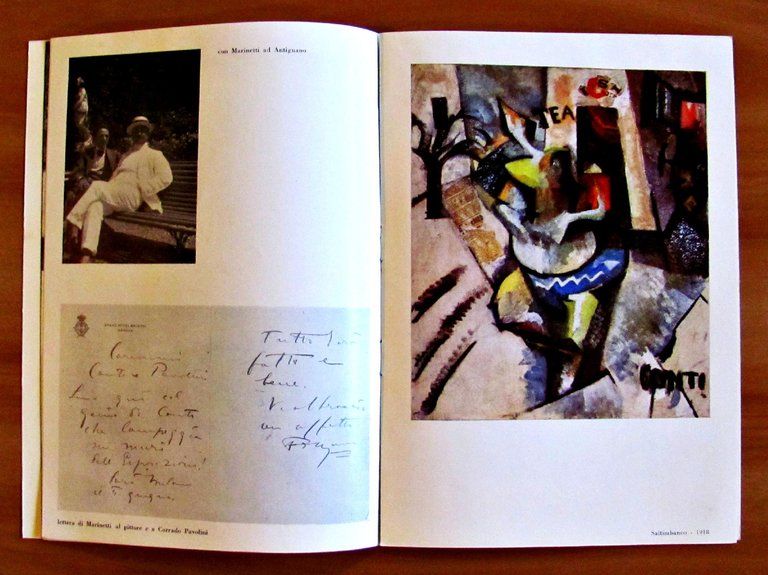 con Marinetti ad Antignano
GRAND HOTEL BRISTOL
Carissimi
Conti e Pavolini
Sono qui col
genio di Conti
che campeggia
sui muri
dell'Esposizione!
Sarò Milano
il 5 giugno
Tutto sarà
fatto e
bene.
Vi abbraccio
con affetto
lettera di Marinetti al pittore e a Corrado Pavolini
TEA
CONTI
Saltimbanco - 1918